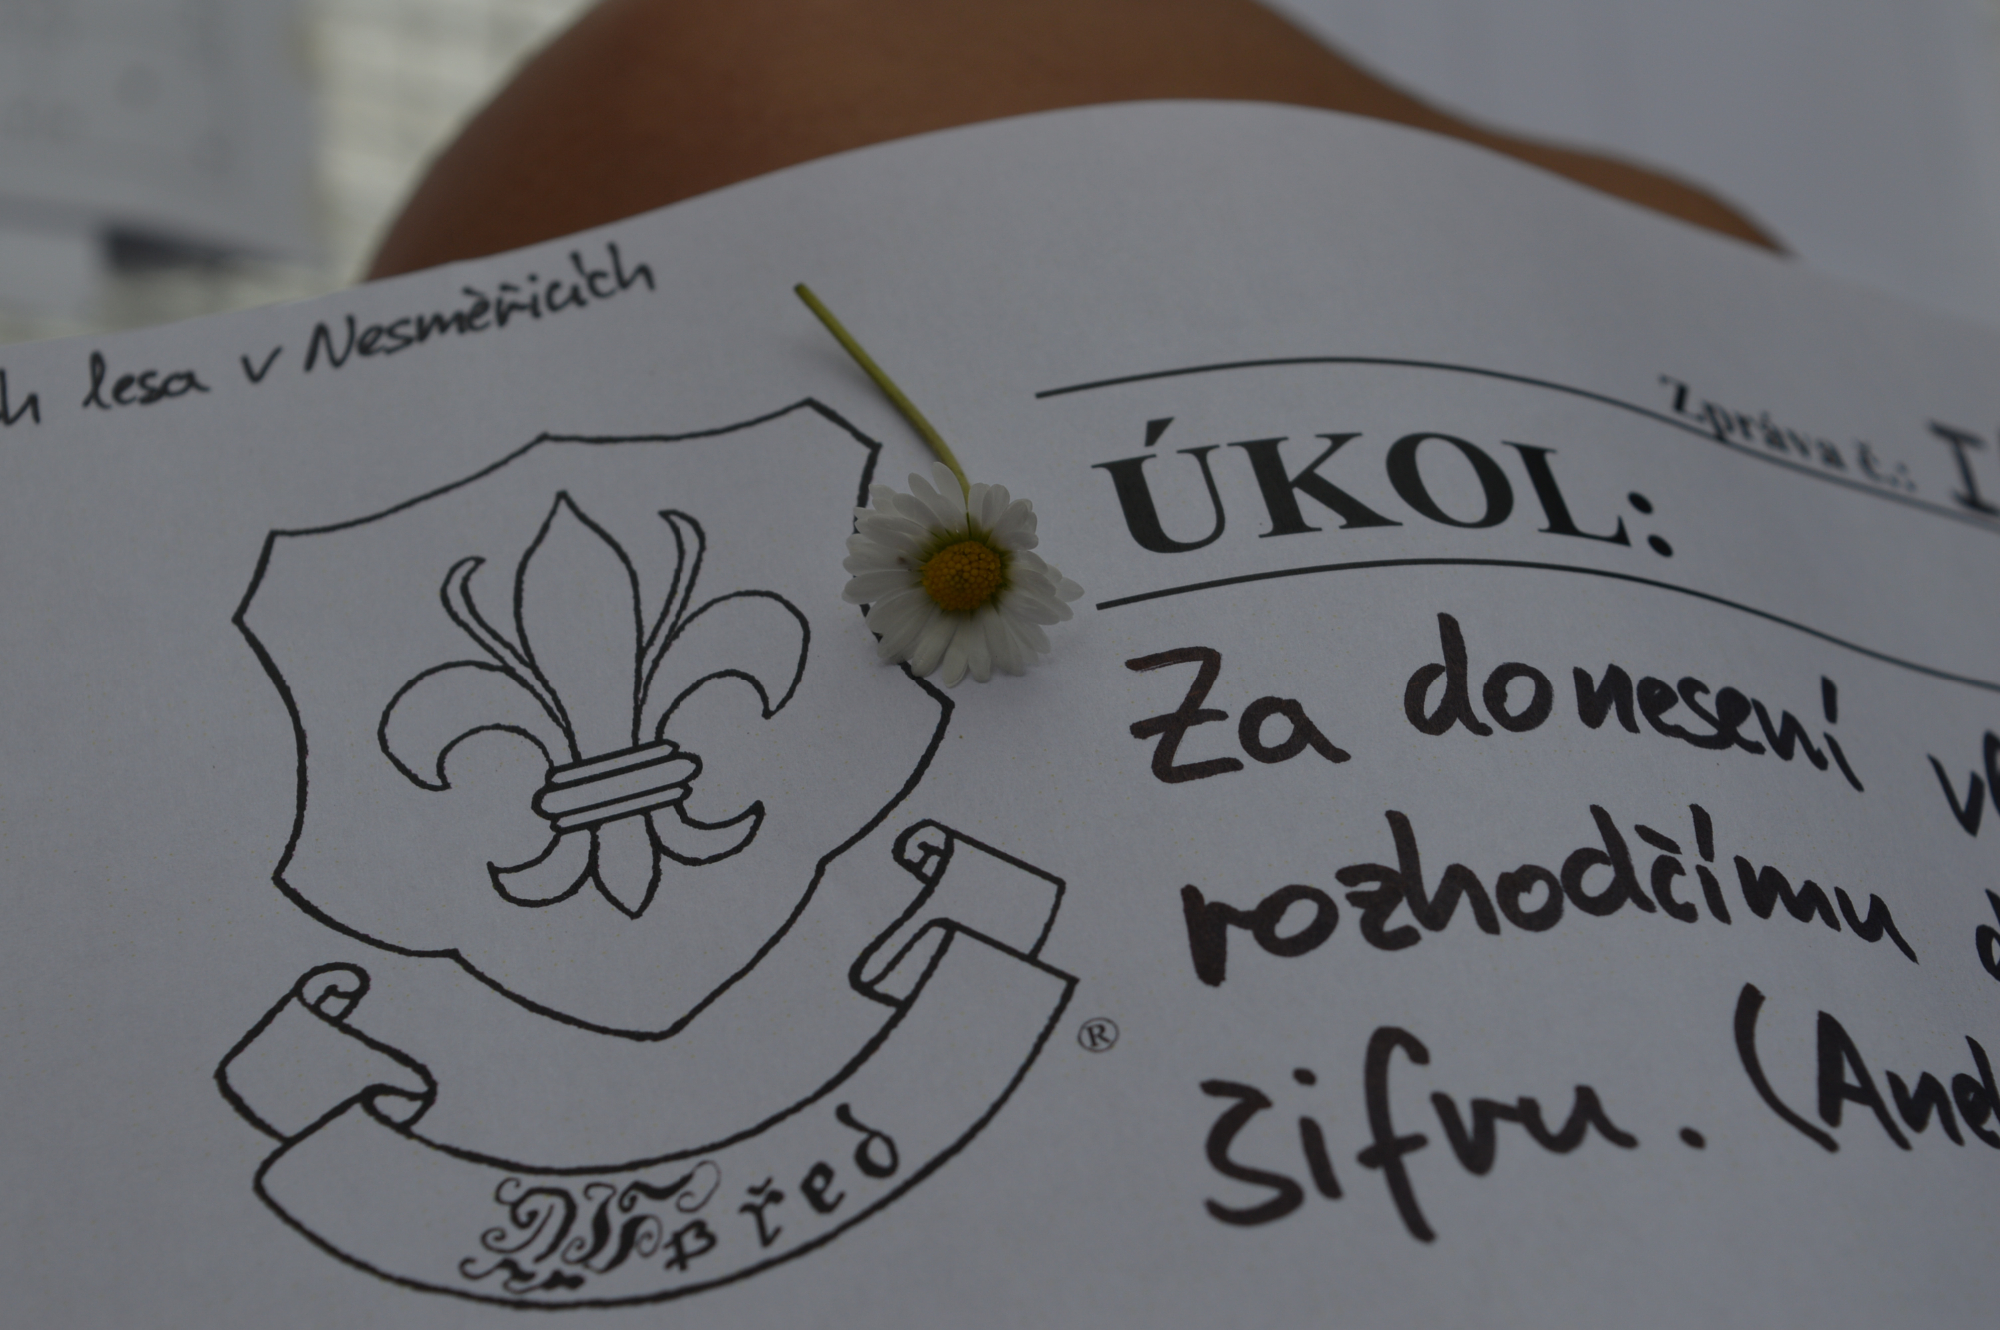 lesa v Nesměřicích
Zpráva č.:
ÚKOL:
Za donesení
rozhodčímu
šifru. (And
®